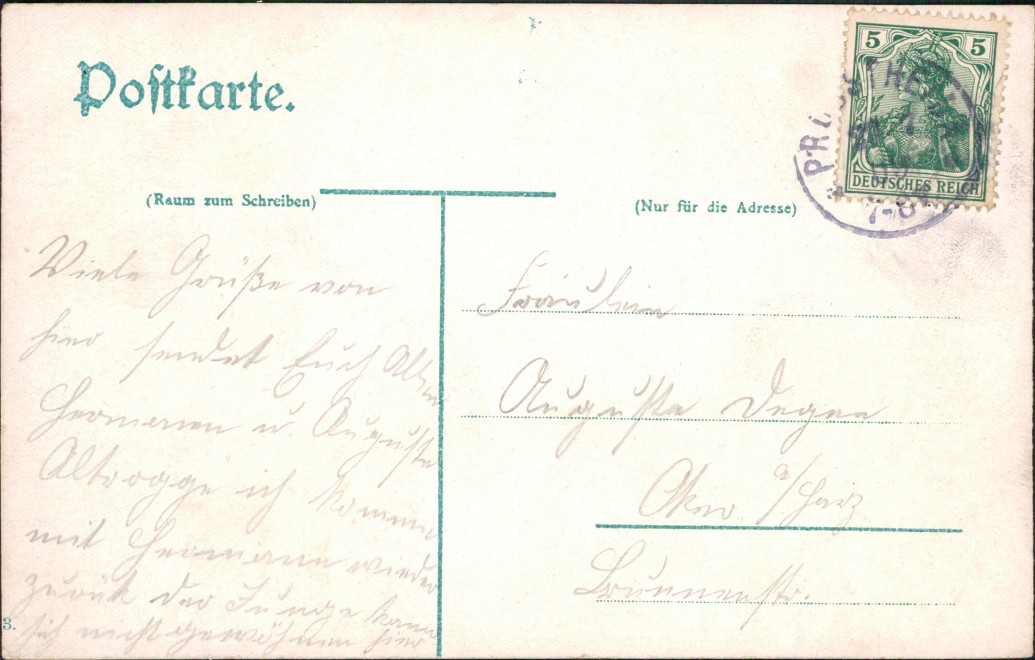 Postkarte.
5 5
DEUTSCHES REICH
7-8
(Raum zum Schreiben)
(Nur für die Adresse)
Viele Grüße von
hier sendet Euch Allen
Hermann u. Auguste
Altrogge ich komme
mit Hermann wieder
zurük der Junge kann
sich nicht gewöhnen hier
Fräulein
Auguste Degen
Oker a/Harz
Brunnenstr.
3.